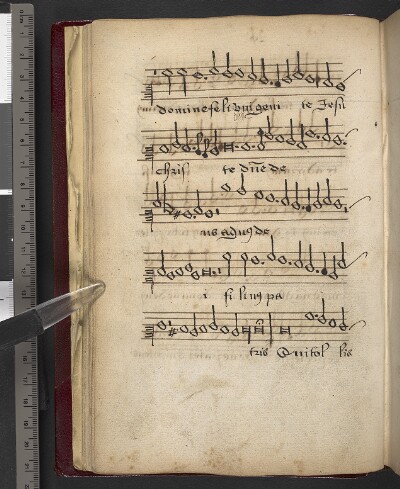 domine fili unigeni te Jesu
chris te dne de
us agnus de
i filius pa
tris Qui tol lis